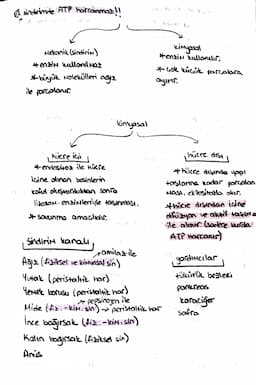 Sindirimde ATP harcanmaz!!
Mekanik (sindirim)
* enzim kullanılmaz
* büyük molekülleri ağız
ile parçalanır.
kimyasal
* enzim kullanılır.
* çok küçük parçalara
ayırır.
kimyasal
hücre içi
* endositoz ile hücre
içine alınan besinlerin
sonra
lizozom enzimleriyle
* savunma amaçlıdır.
hücre dışı
* hücre dışında yapı
taşlarına kadar parçalan
ması.
* hücre dışından içine
difüzyon ve aktif taşıma
ile alınır (sadece burda
ATP harcanır)
Sindirim kanalı
amilaz ile
Ağız (fiziksel ve kimyasal sin)
Yutak (peristaltik har)
Yemek borusu (peristaltik har)
pepsinojen ile
Mide (fiz.-kim.sin) → peristaltik har
İnce bağırsak (fiz.-kim.sin)
Kalın bağırsak (fiziksel sin)
Anüs
yardımcılar
tükürük bezleri
pankreas
karaciğer
safra